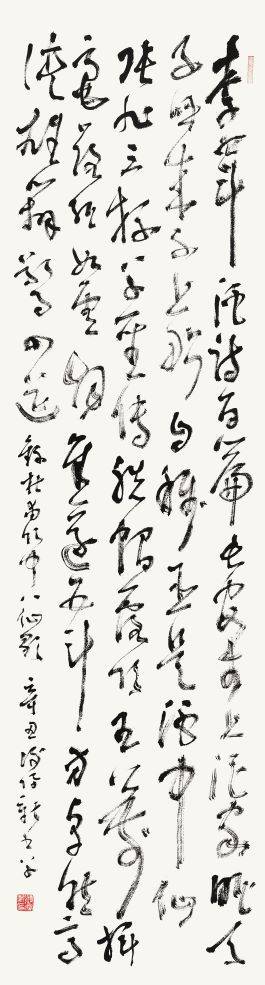 李白斗酒詩百篇長安市上酒家眠天
子呼來不上船自稱臣是酒中仙
張旭三杯草聖傳脫帽露頂王公前揮
毫落紙如雲煙焦遂五斗方卓然高
談雄辯驚四筵 錄杜甫飲中八仙歌 辛丑